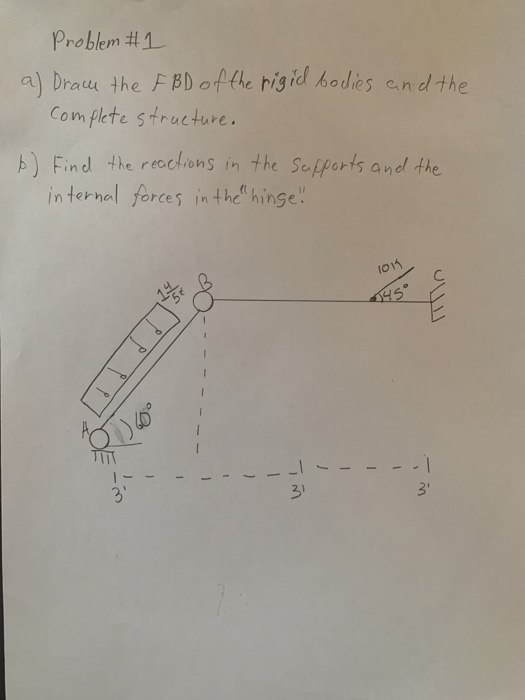 Problem #1
a) Draw the FBD of the rigid bodies and the
Complete structure.
b) Find the reactions in the Supports and the
internal forces in the "hinge".
B
10K
C
45°
A
60°
3'
3'
3'